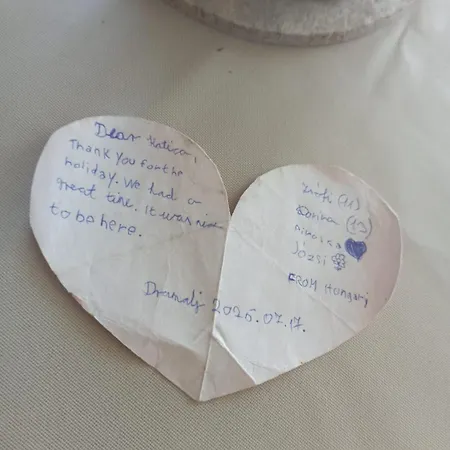 Dear
Thank you for the
holiday. We had a
great time. It was nice
to be here.
(11)
Dorka (13)
Józsi
FROM Hungary
Dramalj 2025.07.17.